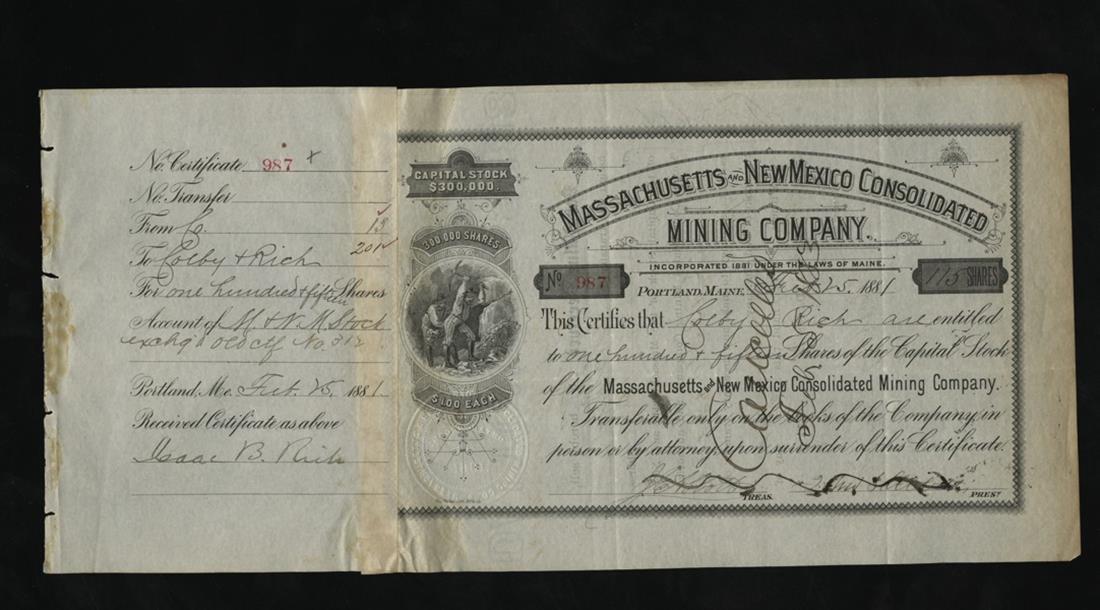 No. Certificate 987 +
No. Transfer
From Co. 13
To Colby & Rich 201
For one hundred & fifteen Shares
Account of M & N. M Stock
exchg'd old ctf. No. 312
Portland, Me. Feb. 25, 1881.
Received Certificate as above
Isaac B. Rich
CAPITAL STOCK
$300,000.
300,000 SHARES
$1.00 EACH
MASSACHUSETTS AND NEW MEXICO CONSOLIDATED
MINING COMPANY.
INCORPORATED 1881 UNDER THE LAWS OF MAINE.
No 987
PORTLAND, MAINE, Feb 25, 1881
115 SHARES
This Certifies that Colby & Rich are entitled
to one hundred & fifteen Shares of the Capital Stock
of the Massachusetts and New Mexico Consolidated Mining Company.
Transferable only on the books of the Company, in
person or by attorney, upon surrender of this Certificate.
TREAS.
PREST
Cancelled
Feb